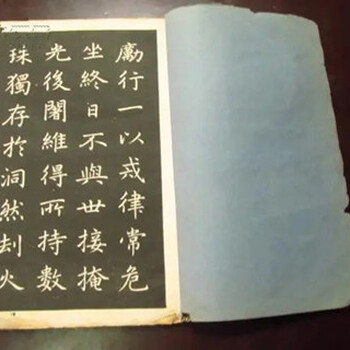 勵行一以戒律常危
坐終日不與世接掩
光後闍維得所持數
珠獨存於洞然刦火